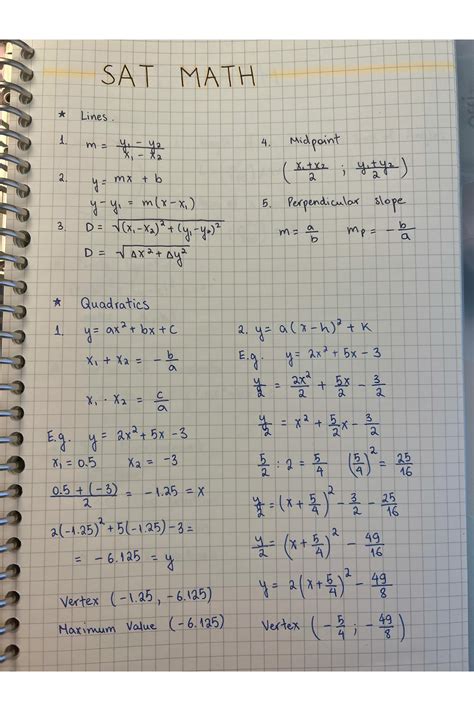 SAT MATH
* Lines.
1. m = (y₁ - y₂)/(x₁ - x₂)
2. y = mx + b
y - y₁ = m(x - x₁)
3. D = √((x₁-x₂)² + (y₁-y₂)²)
D = √(Δx² + Δy²)
4. Midpoint
((x₁+x₂)/2 ; (y₁+y₂)/2)
5. Perpendicular slope
m = a/b   mₚ = -b/a
* Quadratics
1. y = ax² + bx + c
x₁ + x₂ = -b/a
x₁ · x₂ = c/a
E.g. y = 2x² + 5x - 3
x₁ = 0.5   x₂ = -3
(0.5 + (-3))/2 = -1.25 = x
2(-1.25)² + 5(-1.25) - 3 =
= -6.125 = y
Vertex (-1.25, -6.125)
Maximum Value (-6.125)
2. y = a(x - h)² + k
E.g. y = 2x² + 5x - 3
y/2 = 2x²/2 + 5x/2 - 3/2
y/2 = x² + 5/2x - 3/2
5/2 : 2 = 5/4   (5/4)² = 25/16
y/2 = (x + 5/4)² - 3/2 - 25/16
y/2 = (x + 5/4)² - 49/16
y = 2(x + 5/4)² - 49/8
Vertex (-5/4 ; -49/8)